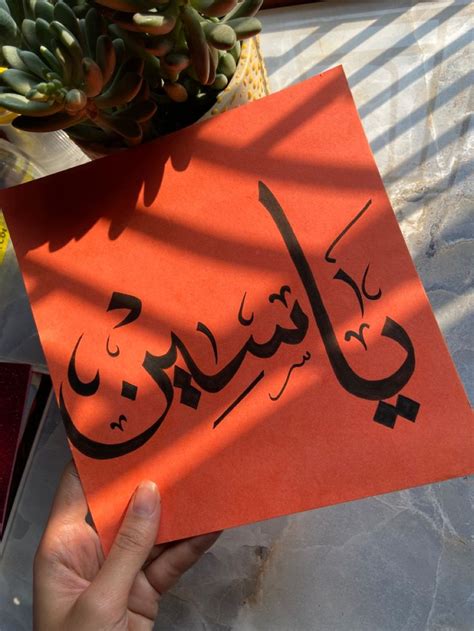 ياسين